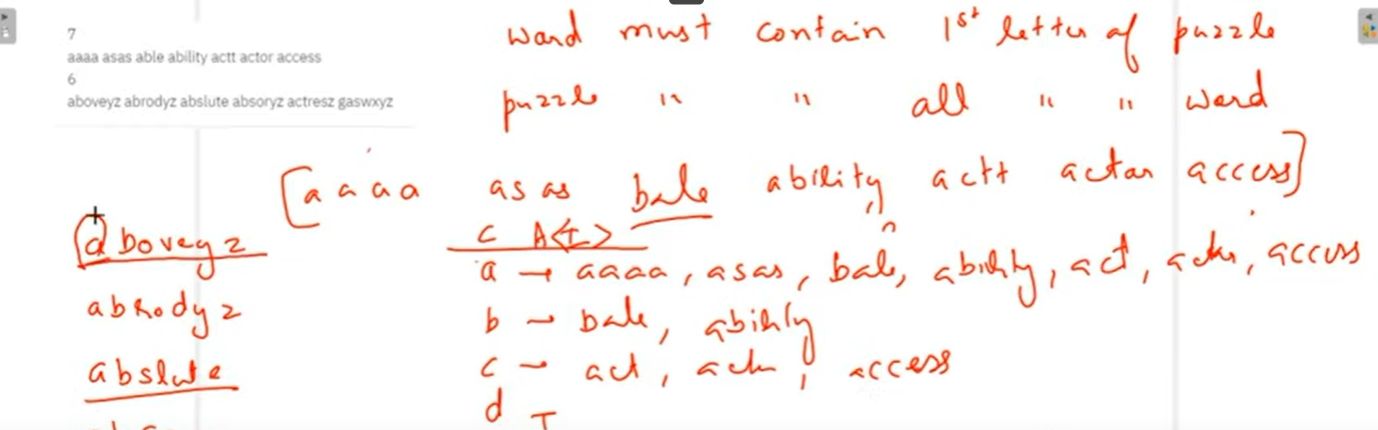 7
aaaa asas able ability actt actor access
6
aboveyz abrodyz abslute absoryz actresz gaswxyz
word must contain 1st letter of puzzle
puzzle " " all " " word
[aaaa asas bale ability actt actor access]
aboveyz
abrodyz
abslute
c A<I>
a → aaaa, asas, bale, ability, act, actor, access
b → bale, ability
c → act, actor, access
d